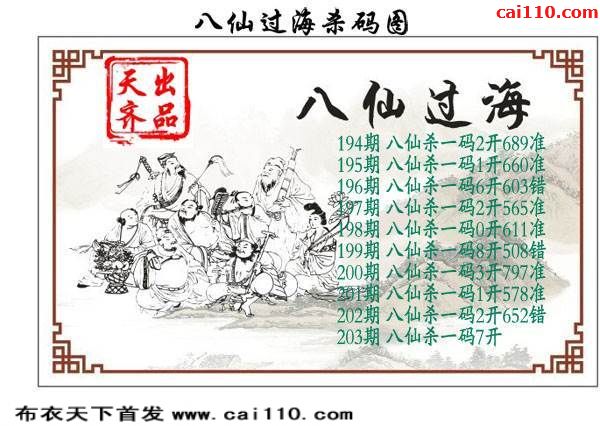 八仙过海杀码图
cai110.com
天齐出品
八仙过海
194期 八仙杀一码2开689准
195期 八仙杀一码1开660准
196期 八仙杀一码6开603错
197期 八仙杀一码2开565准
198期 八仙杀一码0开611准
199期 八仙杀一码8开508错
200期 八仙杀一码3开797准
201期 八仙杀一码1开578准
202期 八仙杀一码2开652错
203期 八仙杀一码7开
布衣天下首发 www.cai110.com